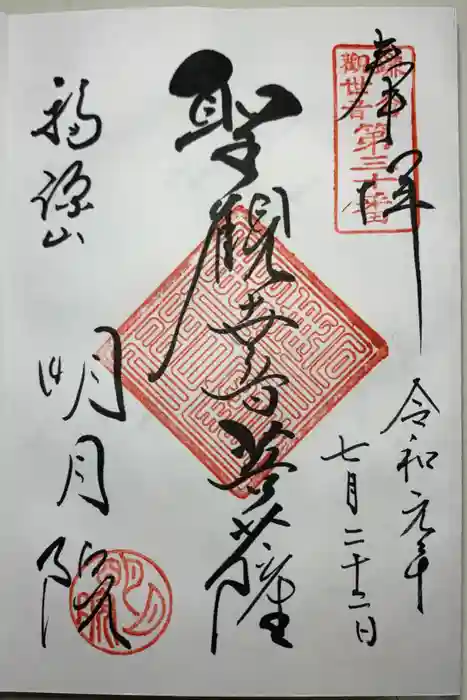 奉拝
鎌倉
觀世音
第三十番
令和元年
七月二十二日
聖觀世音菩薩
福源山
明月院